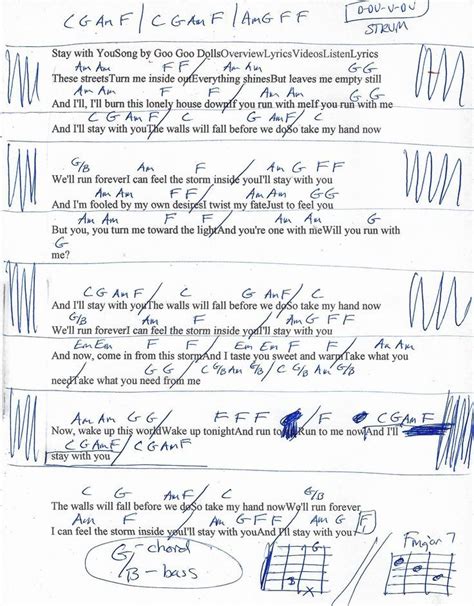 C G Am F / C G Am F / Am G F F
D-DU-U-DU
STRUM
Stay with YouSong by Goo Goo DollsOverviewLyricsVideosListenLyrics
Am Am F F / Am Am G G
These streetsTurn me inside outEverything shinesBut leaves me empty still
Am Am F F / Am Am G G
And I'll, I'll burn this lonely house downIf you run with meIf you run with me
C G Am F / C G Am F / C
And I'll stay with youThe walls will fall before we doSo take my hand now
G/B Am F / Am G F F
We'll run foreverI can feel the storm inside youI'll stay with you
Am Am F F / Am Am G G
And I'm fooled by my own desiresI twist my fateJust to feel you
Am Am F F / Am Am G
But you, you turn me toward the lightAnd you're one with meWill you run with
G
me?
C G Am F / C G Am F / C
And I'll stay with youThe walls will fall before we doSo take my hand now
G/B Am F / Am G F F
We'll run foreverI can feel the storm inside youI'll stay with you
Em Em F F / Em Em F F
And now, come in from this stormAnd I taste you sweet and warmTake what you
C G/B Am G/B / C G/B Am Am
needTake what you need from me
Am Am G G / F F F / F C G Am F
Now, wake up this worldWake up tonightAnd run to Run to me nowAnd I'll
C G Am F / C G Am F
stay with you
C G Am F / C G/B
The walls will fall before we doSo take my hand nowWe'll run forever
Am F / Am G F F / Am G F
I can feel the storm inside youI'll stay with youAnd I'll stay with you
G/B -chord -bass
G
B X
Finger 7